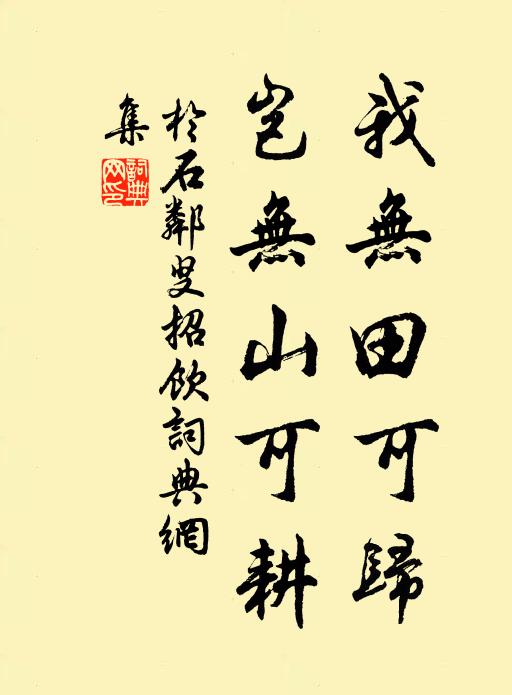 我無田可歸
豈無山可耕
於石鄰叟招飲詞典網
集
詞典網印